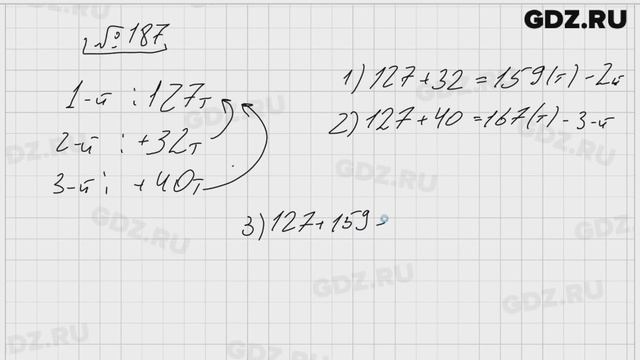 GDZ.RU
№187
1-й : 127т
2-й : +32т
3-й : +40т
1) 127+32 =159(т)-2й
2) 127+40 =167(т)-3-й
3) 127+159
GDZ.RU
GDZ.RU
GDZ.RU
GDZ.RU
GDZ.RU